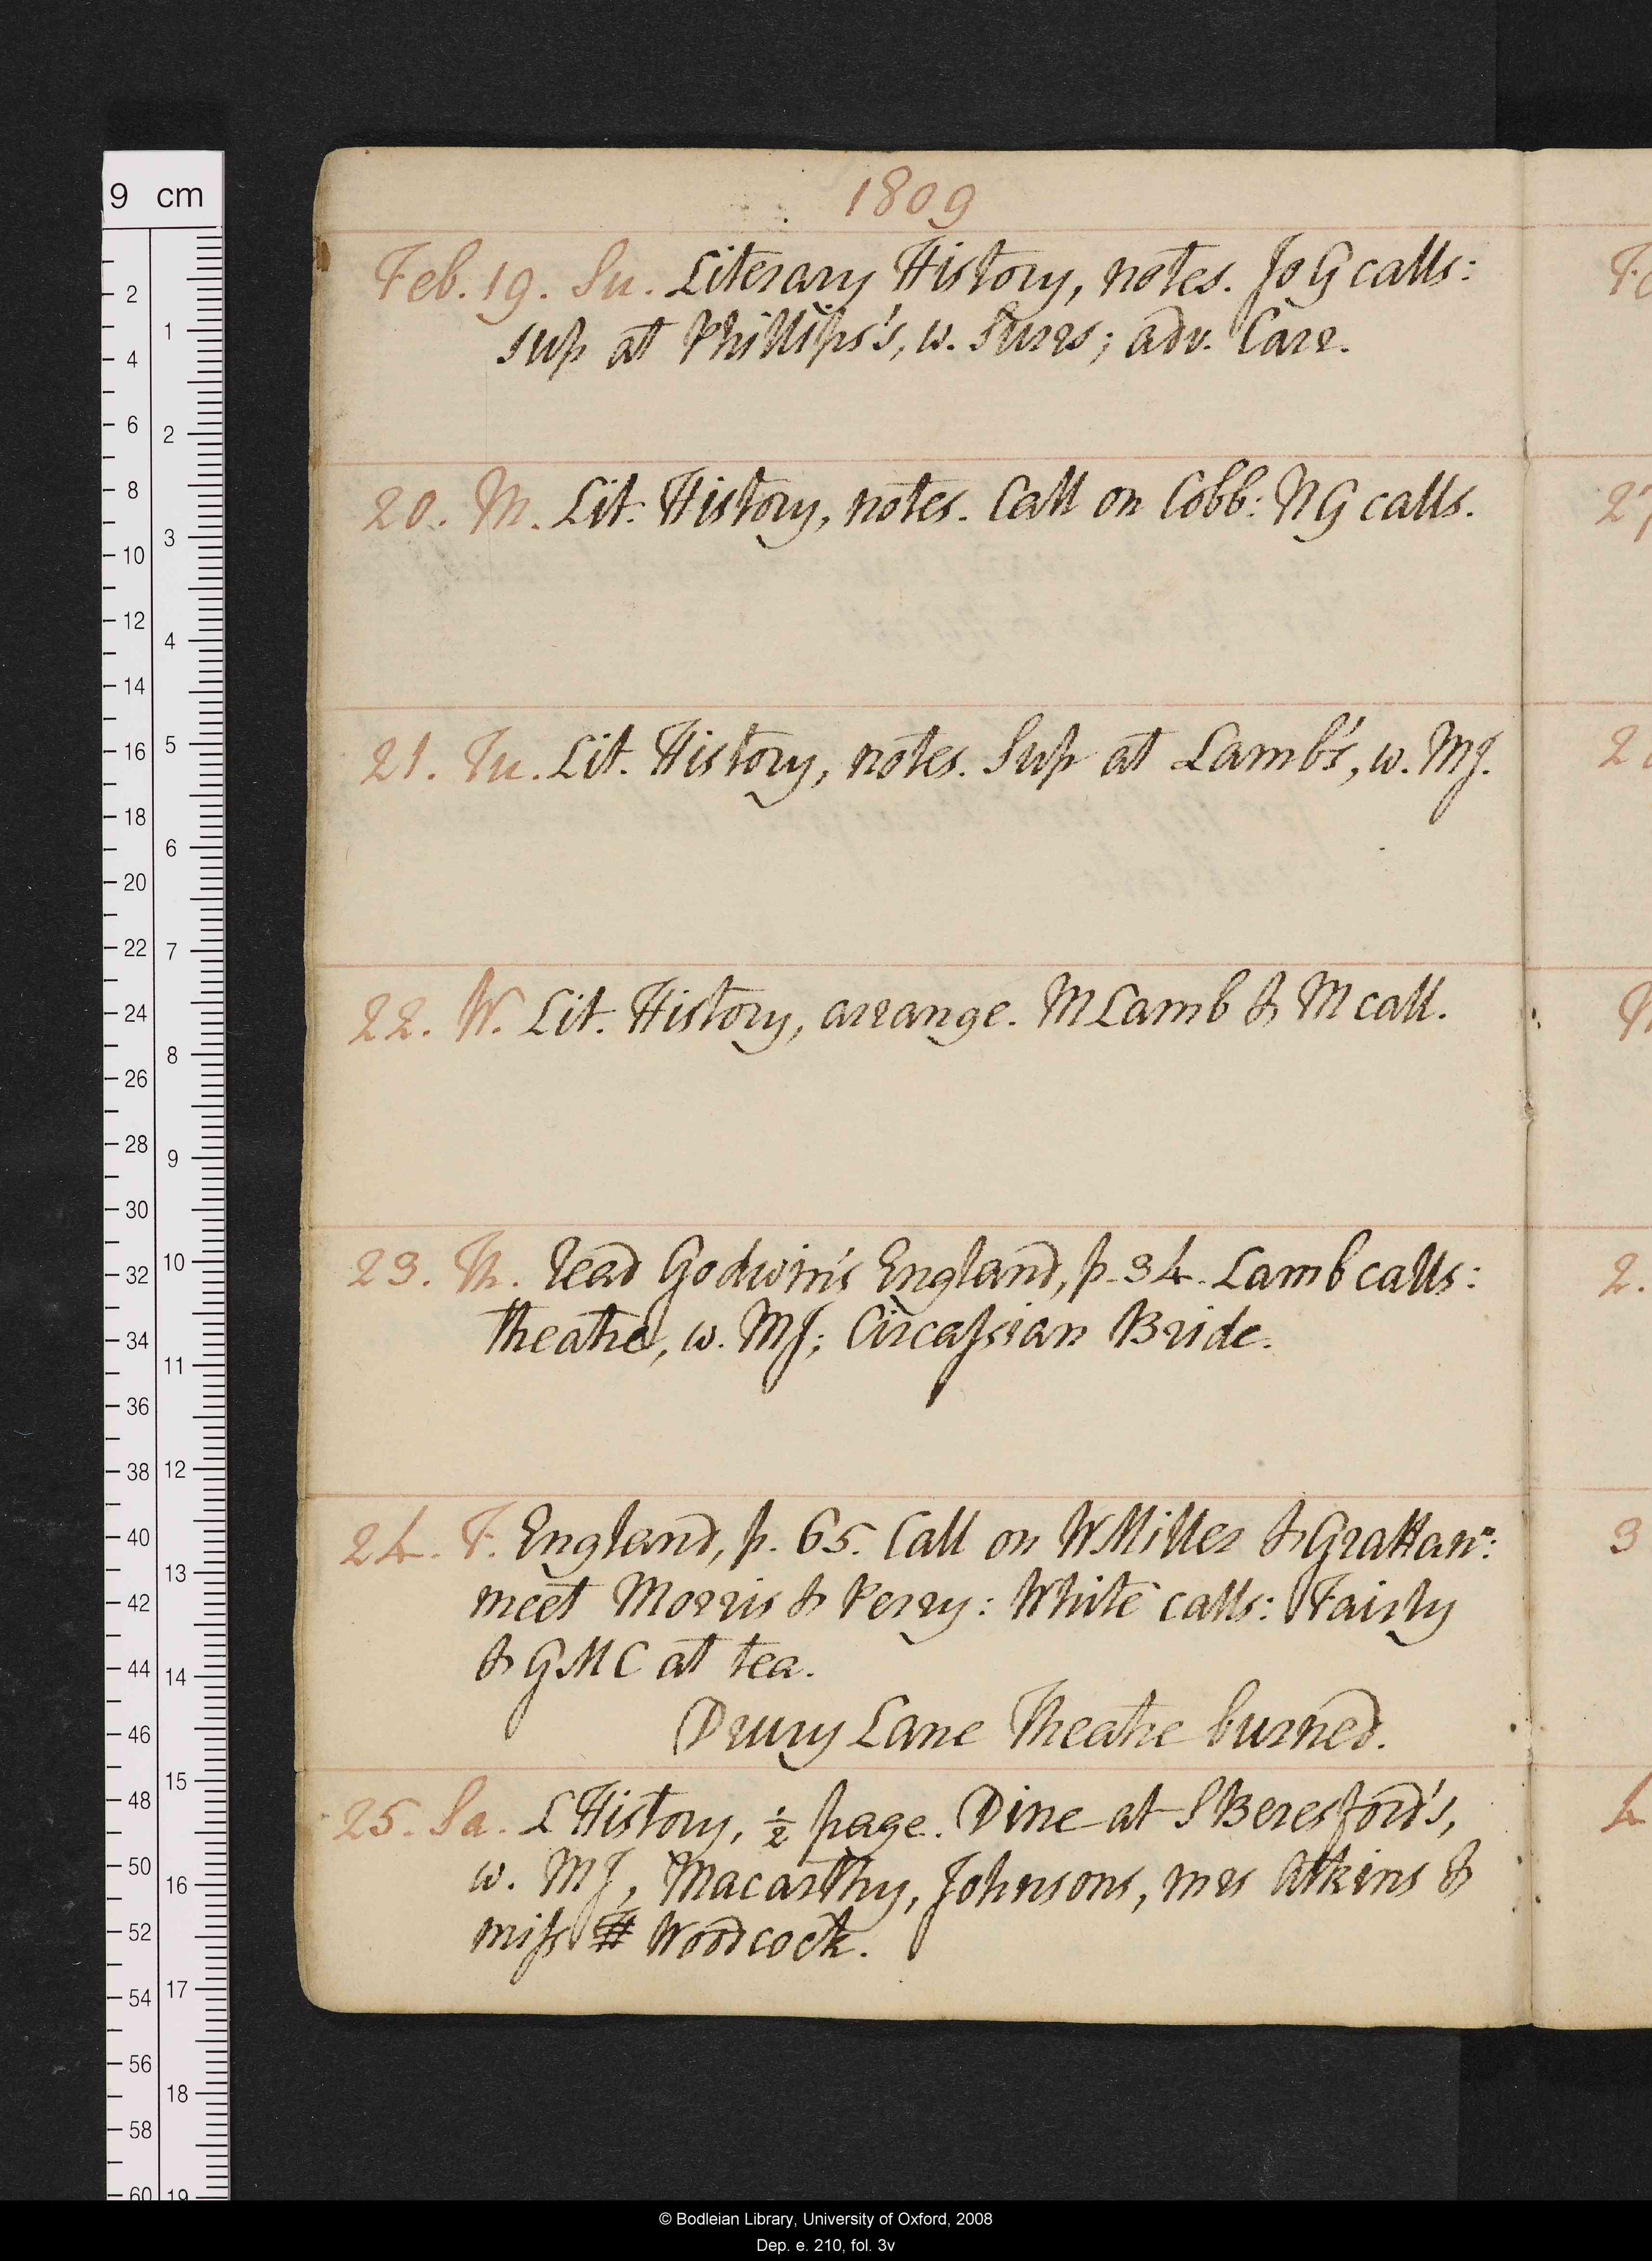 9 cm
1809
Feb. 19. Su. Literary History, notes. Jo G calls:
sup at Phillips's, w. Surrs; adv. Carr.
20. M. Lit. History, notes. Call on Cobb: NG calls.
21. Tu. Lit. History, notes. Sup at Lamb's, w. MJ.
22. W. Lit. History, arrange. M Lamb & M call.
23. Th. Read Godwin's England, p. 34. Lamb calls:
theatre, w. MJ; Circassian Bride.
24. F. England, p. 65. Call on W Miller & Grattan:
meet Morris & Perry: White calls: Fairly
& GMC at tea.
Drury Lane Theatre burned.
25. Sa. L History, ½ page. Dine at S Beresford's,
w. MJ, Macarthy, Johnsons, mrs Atkins &
miss Woodcock.
© Bodleian Library, University of Oxford, 2008
Dep. e. 210, fol. 3v